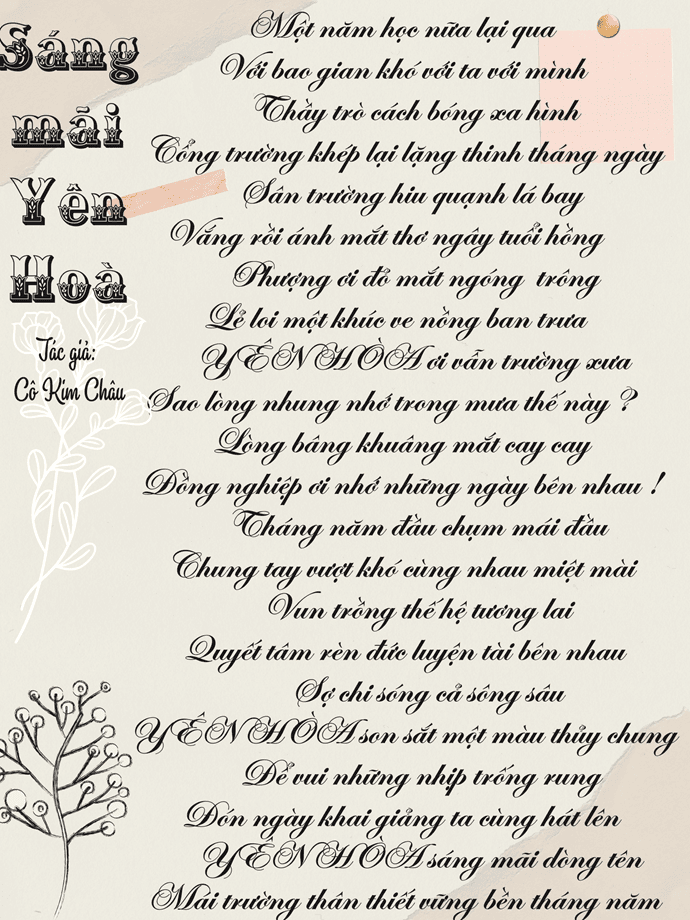 Sáng
mãi
Yên
Hoà
Tác giả:
Cô Kim Châu
Một năm học nữa lại qua
Với bao gian khó với ta với mình
Thầy trò cách bóng xa hình
Cổng trường khép lại lặng thinh tháng ngày
Sân trường hiu quạnh lá bay
Vắng rồi ánh mắt thơ ngây tuổi hồng
Phượng ơi đỏ mắt ngóng trông
Lẻ loi một khúc ve nồng ban trưa
YÊN HÒA ơi vẫn trường xưa
Sao lòng nhung nhớ trong mưa thế này ?
Lòng bâng khuâng mắt cay cay
Đồng nghiệp ơi nhớ những ngày bên nhau !
Tháng năm đầu chụm mái đầu
Chung tay vượt khó cùng nhau miệt mài
Vun trồng thế hệ tương lai
Quyết tâm rèn đức luyện tài bên nhau
Sợ chi sóng cả sông sâu
YÊN HÒA son sắt một màu thủy chung
Để vui những nhịp trống rung
Đón ngày khai giảng ta cùng hát lên
YÊN HÒA sáng mãi dòng tên
Mái trường thân thiết vững bền tháng năm